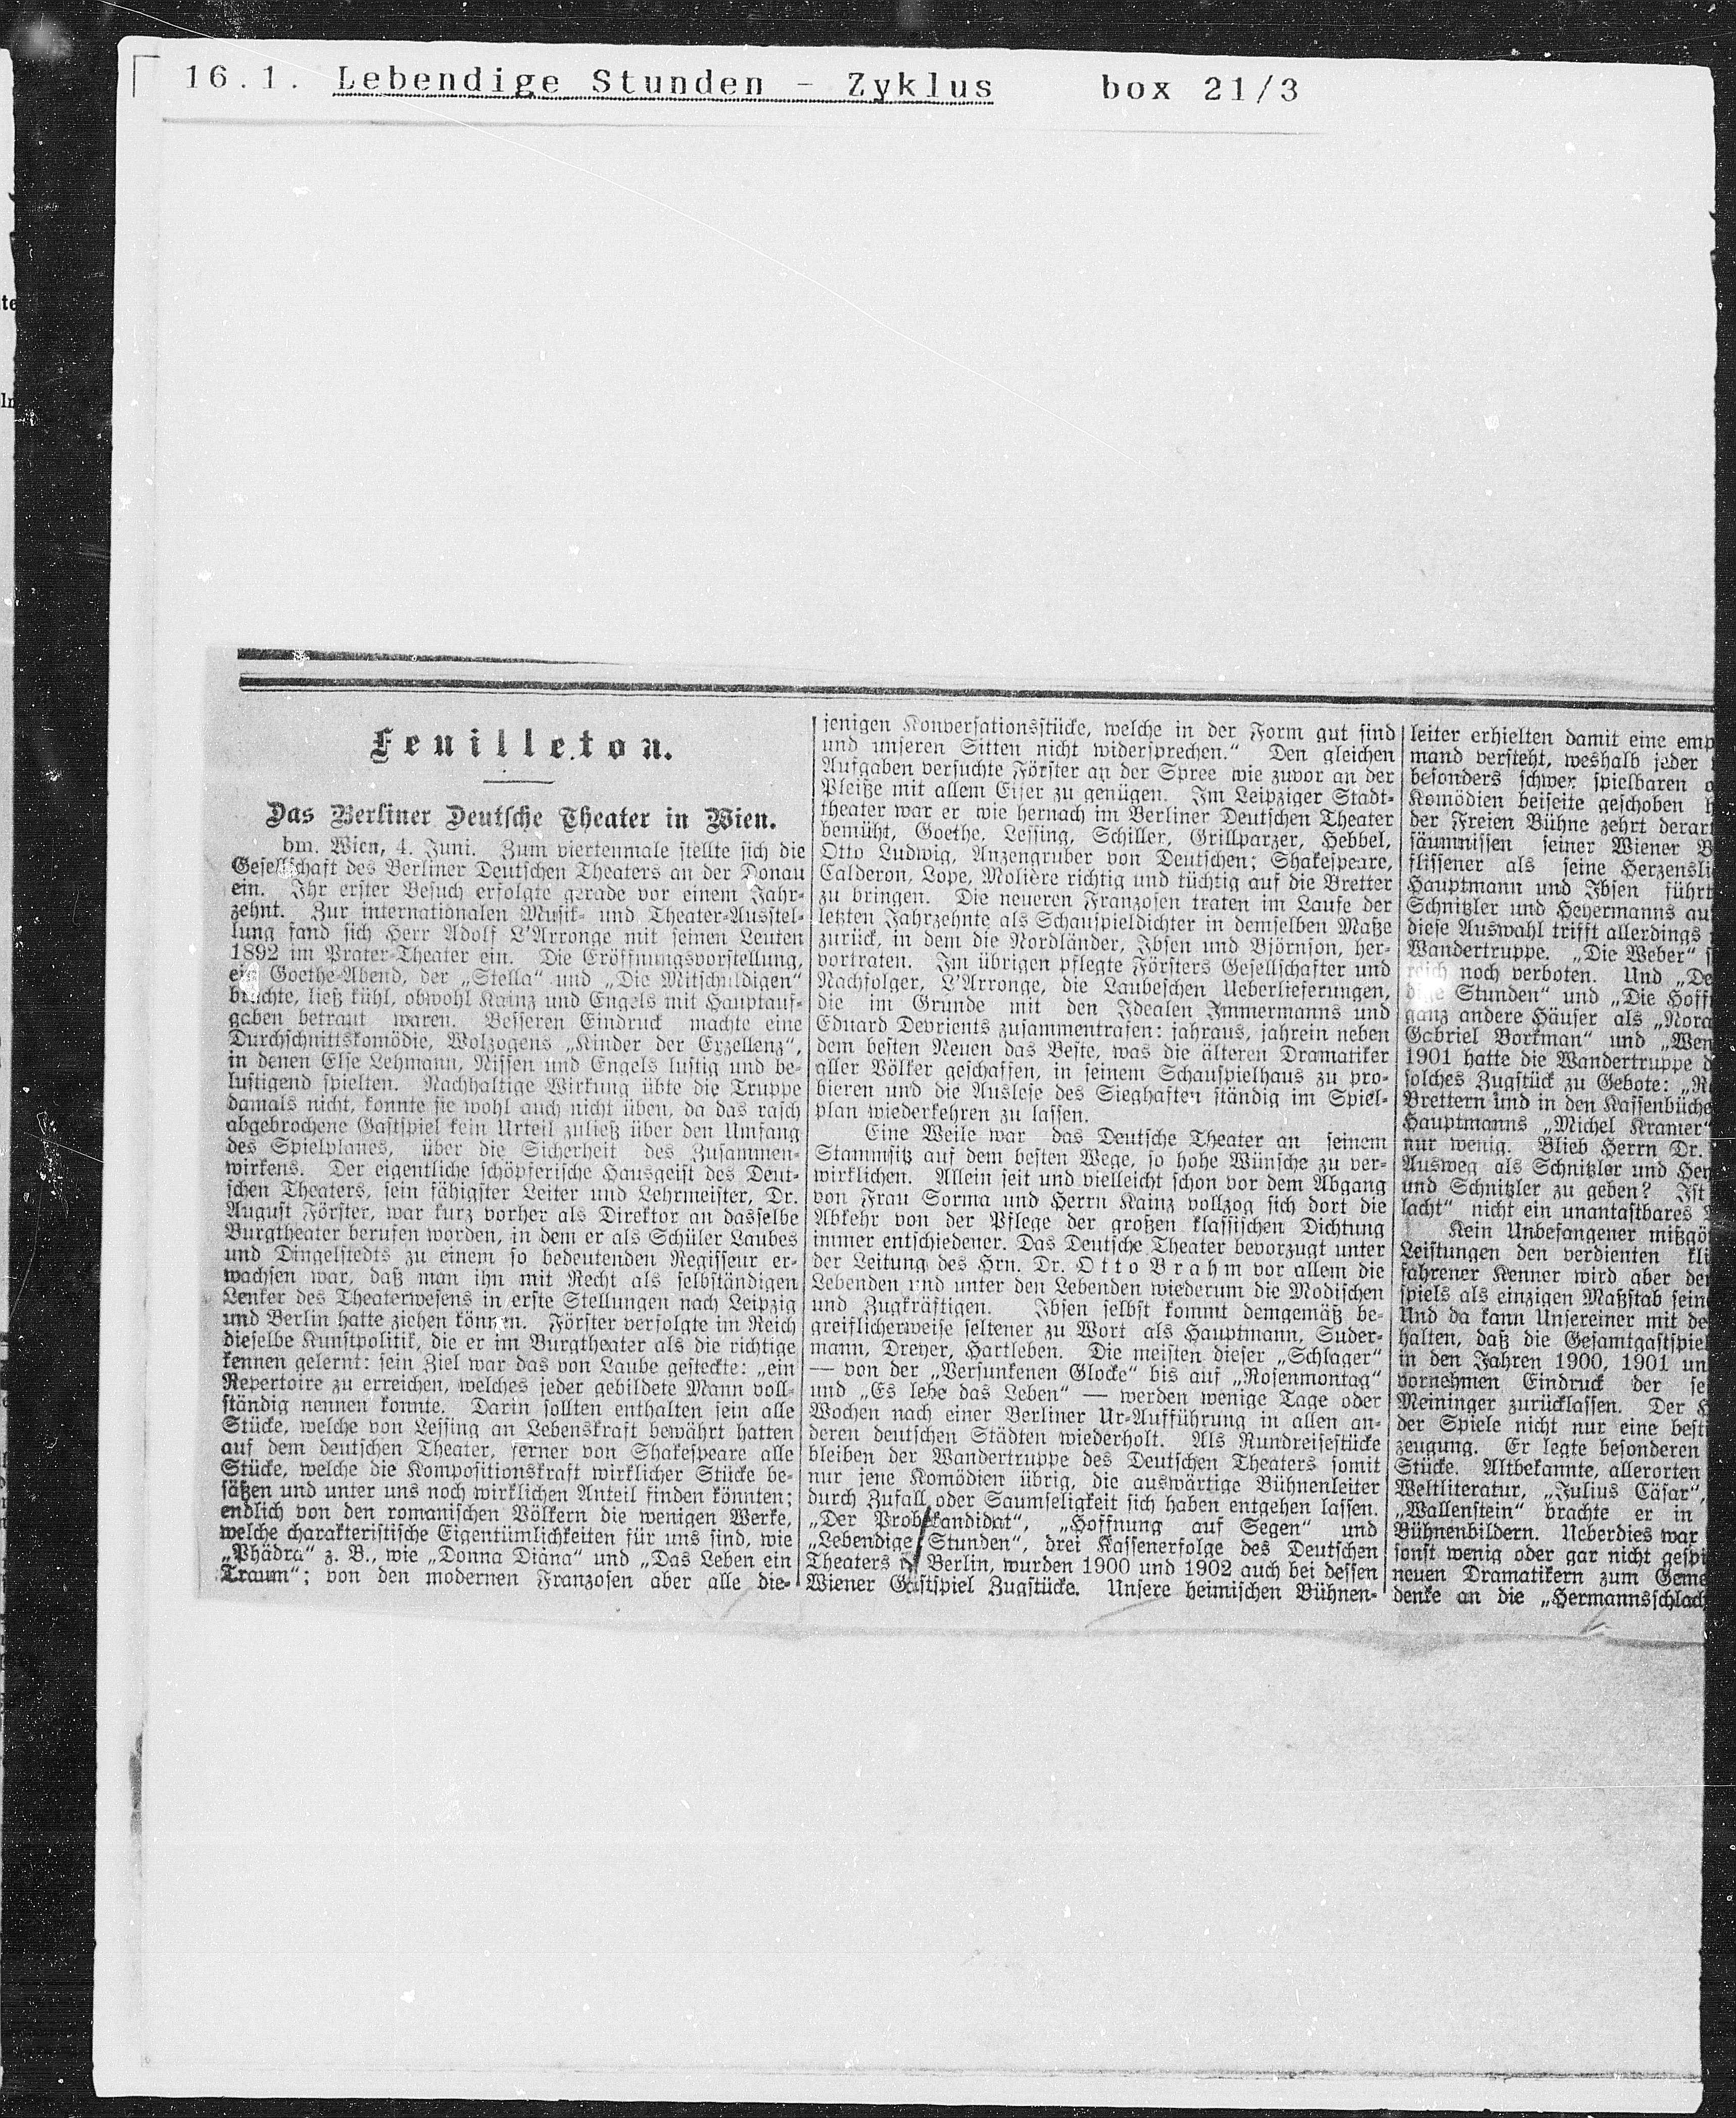 16.1. Lebendige Stunden - Zyklus box 21/3
Feuilleton.
Das Berliner Deutsche Theater in Wien.
bm. Wien, 4. Juni. Zum viertenmale stellte sich die
Gesellschaft des Berliner Deutschen Theaters an der Donau
ein. Ihr erster Besuch erfolgte gerade vor einem Jahr-
zehnt. Zur internationalen Musik- und Theater-Ausstel-
lung fand sich Herr Adolf L'Arronge mit seinen Leuten
1892 im Prater-Theater ein. Die Eröffnungsvorstellung,
ein Goethe-Abend, der „Stella“ und „Die Mitschuldigen“
brachte, ließ kühl, obwohl Kainz und Engels mit Hauptauf-
gaben betraut waren. Besseren Eindruck machte eine
Durchschnittskomödie, Wolzogens „Kinder der Exzellenz“,
in denen Else Lehmann, Nissen und Engels lustig und be-
lustigend spielten. Nachhaltige Wirkung übte die Truppe
damals nicht, konnte sie wohl auch nicht üben, da das rasch
abgebrochene Gastspiel kein Urteil zuließ über den Umfang
des Spielplanes, über die Sicherheit des Zusammen-
wirkens. Der eigentliche schöpferische Hausgeist des Deut-
schen Theaters, sein fähigster Leiter und Lehrmeister, Dr.
August Förster, war kurz vorher als Direktor an dasselbe
Burgtheater berufen worden, in dem er als Schüler Laubes
und Dingelstedts zu einem so bedeutenden Regisseur er-
wachsen war, daß man ihn mit Recht als selbständigen
Lenker des Theaterwesens in erste Stellungen nach Leipzig
und Berlin hatte ziehen können. Förster verfolgte im Reich
dieselbe Kunstpolitik, die er im Burgtheater als die richtige
kennen gelernt: sein Ziel war das von Laube gesteckte: „ein
Repertoire zu erreichen, welches jeder gebildete Mann voll-
ständig nennen könnte. Darin sollten enthalten sein alle
Stücke, welche von Lessing an Lebenskraft bewährt hatten
auf dem deutschen Theater, ferner von Shakespeare alle
Stücke, welche die Kompositionskraft wirklicher Stücke be-
säßen und unter uns noch wirklichen Anteil finden könnten;
endlich von den romanischen Völkern die wenigen Werke,
welche charakteristische Eigentümlichkeiten für uns sind, wie
„Phädra“ z. B., wie „Donna Diana“ und „Das Leben ein
Traum“; von den modernen Franzosen aber alle die-
jenigen Konversationsstücke, welche in der Form gut sind
und unseren Sitten nicht widersprechen.“ Den gleichen
Aufgaben versuchte Förster an der Spree wie zuvor an der
Pleiße mit allem Eifer zu genügen. Im Leipziger Stadt-
theater war er wie hernach im Berliner Deutschen Theater
bemüht, Goethe, Lessing, Schiller, Grillparzer, Hebbel,
Otto Ludwig, Anzengruber von Deutschen; Shakespeare,
Calderon, Lope, Molière richtig und tüchtig auf die Bretter
zu bringen. Die neueren Franzosen traten im Laufe der
letzten Jahrzehnte als Schauspieldichter in demselben Maße
zurück, in dem die Nordländer, Ibsen und Björnson, her-
vortraten. Im übrigen pflegte Försters Gesellschafter und
Nachfolger, L'Arronge, die Laubeschen Ueberlieferungen,
die im Grunde mit den Idealen Immermanns und
Eduard Devrients zusammentrafen: jahraus, jahrein neben
dem besten Neuen das Beste, was die älteren Dramatiker
aller Völker geschaffen, in seinem Schauspielhaus zu pro-
bieren und die Auslese des Sieghaften ständig im Spiel-
plan wiederkehren zu lassen.
Eine Weile war das Deutsche Theater an seinem
Stammsitz auf dem besten Wege, so hohe Wünsche zu ver-
wirklichen. Allein seit und vielleicht schon vor dem Abgang
von Frau Sorma und Herrn Kainz vollzog sich dort die
Abkehr von der Pflege der großen klassischen Dichtung
immer entschiedener. Das Deutsche Theater bevorzugt unter
der Leitung des Hrn. Dr. Otto Brahm vor allem die
Lebenden und unter den Lebenden wiederum die Modischen
und Zugkräftigen. Ibsen selbst kommt demgemäß be-
greiflicherweise seltener zu Wort als Hauptmann, Suder-
mann, Dreyer, Hartleben. Die meisten dieser „Schlager“
— von der „Versunkenen Glocke“ bis auf „Rosenmontag“
und „Es lebe das Leben“ — werden wenige Tage oder
Wochen nach einer Berliner Ur-Aufführung in allen an-
deren deutschen Städten wiederholt. Als Rundreisestücke
bleiben der Wandertruppe des Deutschen Theaters somit
nur jene Komödien übrig, die auswärtige Bühnenleiter
durch Zufall oder Saumseligkeit sich haben entgehen lassen.
„Der Probekandidat“, „Hoffnung auf Segen“ und
„Lebendige Stunden“, drei Kassenerfolge des Deutschen
Theaters in Berlin, wurden 1900 und 1902 auch bei dessen
Wiener Gastspiel Zugstücke. Unsere heimischen Bühnen-
leiter erhielten damit eine emp
mand versteht, weshalb jeder
besonders schwer spielbaren
Komödien beiseite geschoben
der Freien Bühne zehrt derar
säumnissen seiner Wiener B
flissener als seine Herzensli
Hauptmann und Ibsen führt
Schnitzler und Heyermanns au
diese Auswahl trifft allerdings
Wandertruppe. „Die Weber“ s
reich noch verboten. Und „De
dige Stunden“ und „Die Hoff
ganz andere Häuser als „Nora
Gabriel Borkman“ und „Wen
1901 hatte die Wandertruppe d
solches Zugstück zu Gebote: „R
Brettern und in den Kassenbüche
Hauptmanns „Michel Kramer“
nur wenig. Blieb Herrn Dr.
Ausweg als Schnitzler und Hey
und Schnitzler zu geben? Ist
lacht“ nicht ein unantastbares
Kein Unbefangener mißgö
Leistungen den verdienten kli
fahrener Kenner wird aber de
spiels als einzigen Maßstab sein
Und da kann Unsereiner mit de
halten, daß die Gesamtgastspiel
in den Jahren 1900, 1901 un
vornehmen Eindruck der se
Meininger zurücklassen. Der H
der Spiele nicht nur eine best
zeugung. Er legte besonderen
Stücke. Altbekannte, allerorten
Weltliteratur, „Julius Cäsar“,
„Wallenstein“ brachte er in
Bühnenbildern. Ueberdies war
sonst wenig oder gar nicht gespi
neuen Dramatikern zum Geme
denke an die „Hermannsschlach